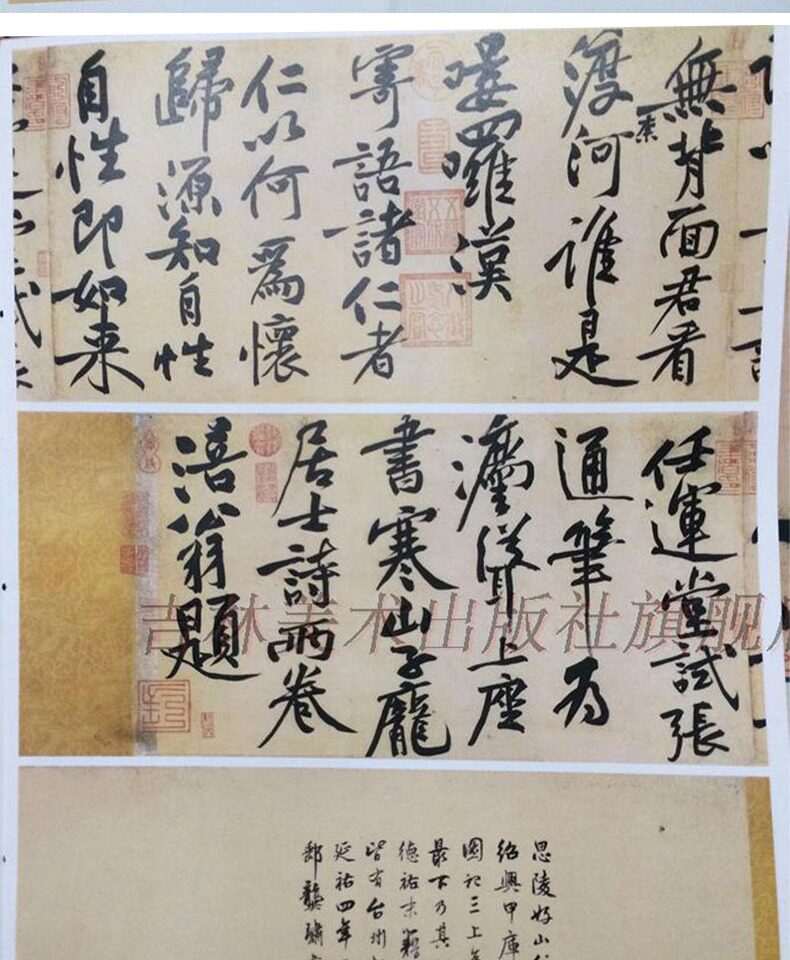 無背面君看
柰
渡河誰是
嘍囉漢
寄語諸仁者
仁以何爲懷
歸源知自性
自性即如来
任運堂試張
通筆为
灋聳上座
書寒山子龐
居士詩兩卷
涪翁題
吉林美术出版社旗舰
思陵好山
紹興甲庫
圖記三上
最下乃其
德祐末籍
皆有台州
延祐四年
龔璛